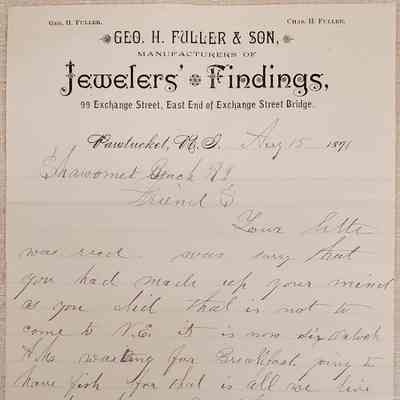 Geo. H. Fuller. Chas. H. Fuller.
GEO. H. FULLER & SON,
MANUFACTURERS OF
Jewelers' Findings,
99 Exchange Street, East End of Exchange Street Bridge.
Pawtucket, R. I. Aug 15 1891
Shawomet Beach RI
Friend S.
Your letter
was recd was sorry that
you had made up your mind
as you did that is not to
come to N.E. it is now six oclock
A.M. waiting for Breakfast going to
have fish for that is all we live